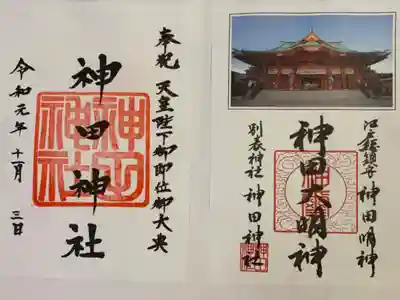 奉祝 天皇陛下御即位御大典
神田神社
神田神社
令和元年 十一月 三日
江戸総鎮守 神田明神
神田大明神
別表神社 神田神社